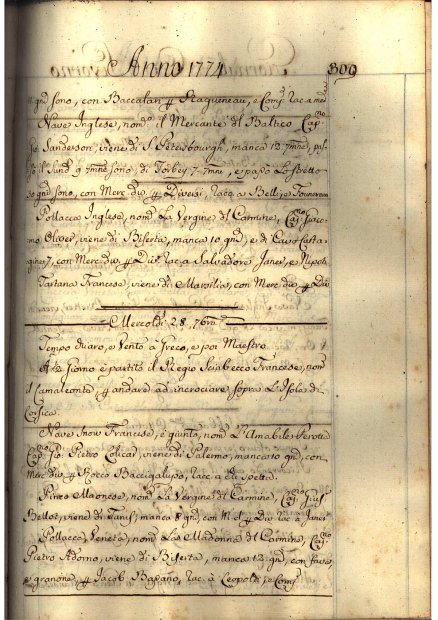 Anno 1774
300
gnd sono, con Baccalari p Ragueneau, e Comp. lac. a med.
Nave Inglese, nom.ª il Mercante del Baltico Cap.
Sanderson, viene di S. Petersbourgh, manca 12 7mne, pas-
9 7mne sono, di Torbey 7 7mne, e passò Lo Stretto
gnd sono, con Merc. div. p Diversi, lac. a Bell, e
Pollacca Inglese, nom. La Vergine del Carmine, Cap. Giaco-
mo Oliver, viene di Biserta, manca 10 gnd, e di
7, con Merc. div. p Div. lac. a Salvadore Janer, e Nipoti
Tartana Francese, viene di Marsilia, con Merc. div. p Div.
Mercoldì 28. 7bre
Tempo chiaro, e Vento à Greco, e poi Maestro
Giorno è partito il Regio Sciabecco Francese, nom.
il Camaleonte, p andare ad incrociare sopra L'Isola di
Corsica.
Nave Snow Francese, è giunto, nom. L'Amabile
Cap. Pietro viene di Palermo, manca 10 gnd, con
Merc. div. p Rocco Baccigalupo, lac. a chi spetta.
Pinco Maonese, nom. La Vergine del Carmine, Cap. Gius.
Bellot, viene di Tunis, manca 8 gnd, con M. el p Div. lac. a Janer
Pollacca Veneta, nom. La Madonna del Carmine, Cap.
Pietro Adorno, viene di Biserta, manca 12 gnd, con fave
e granone, p Jacob Bassano, lac. à Leopoldi, e Comp.